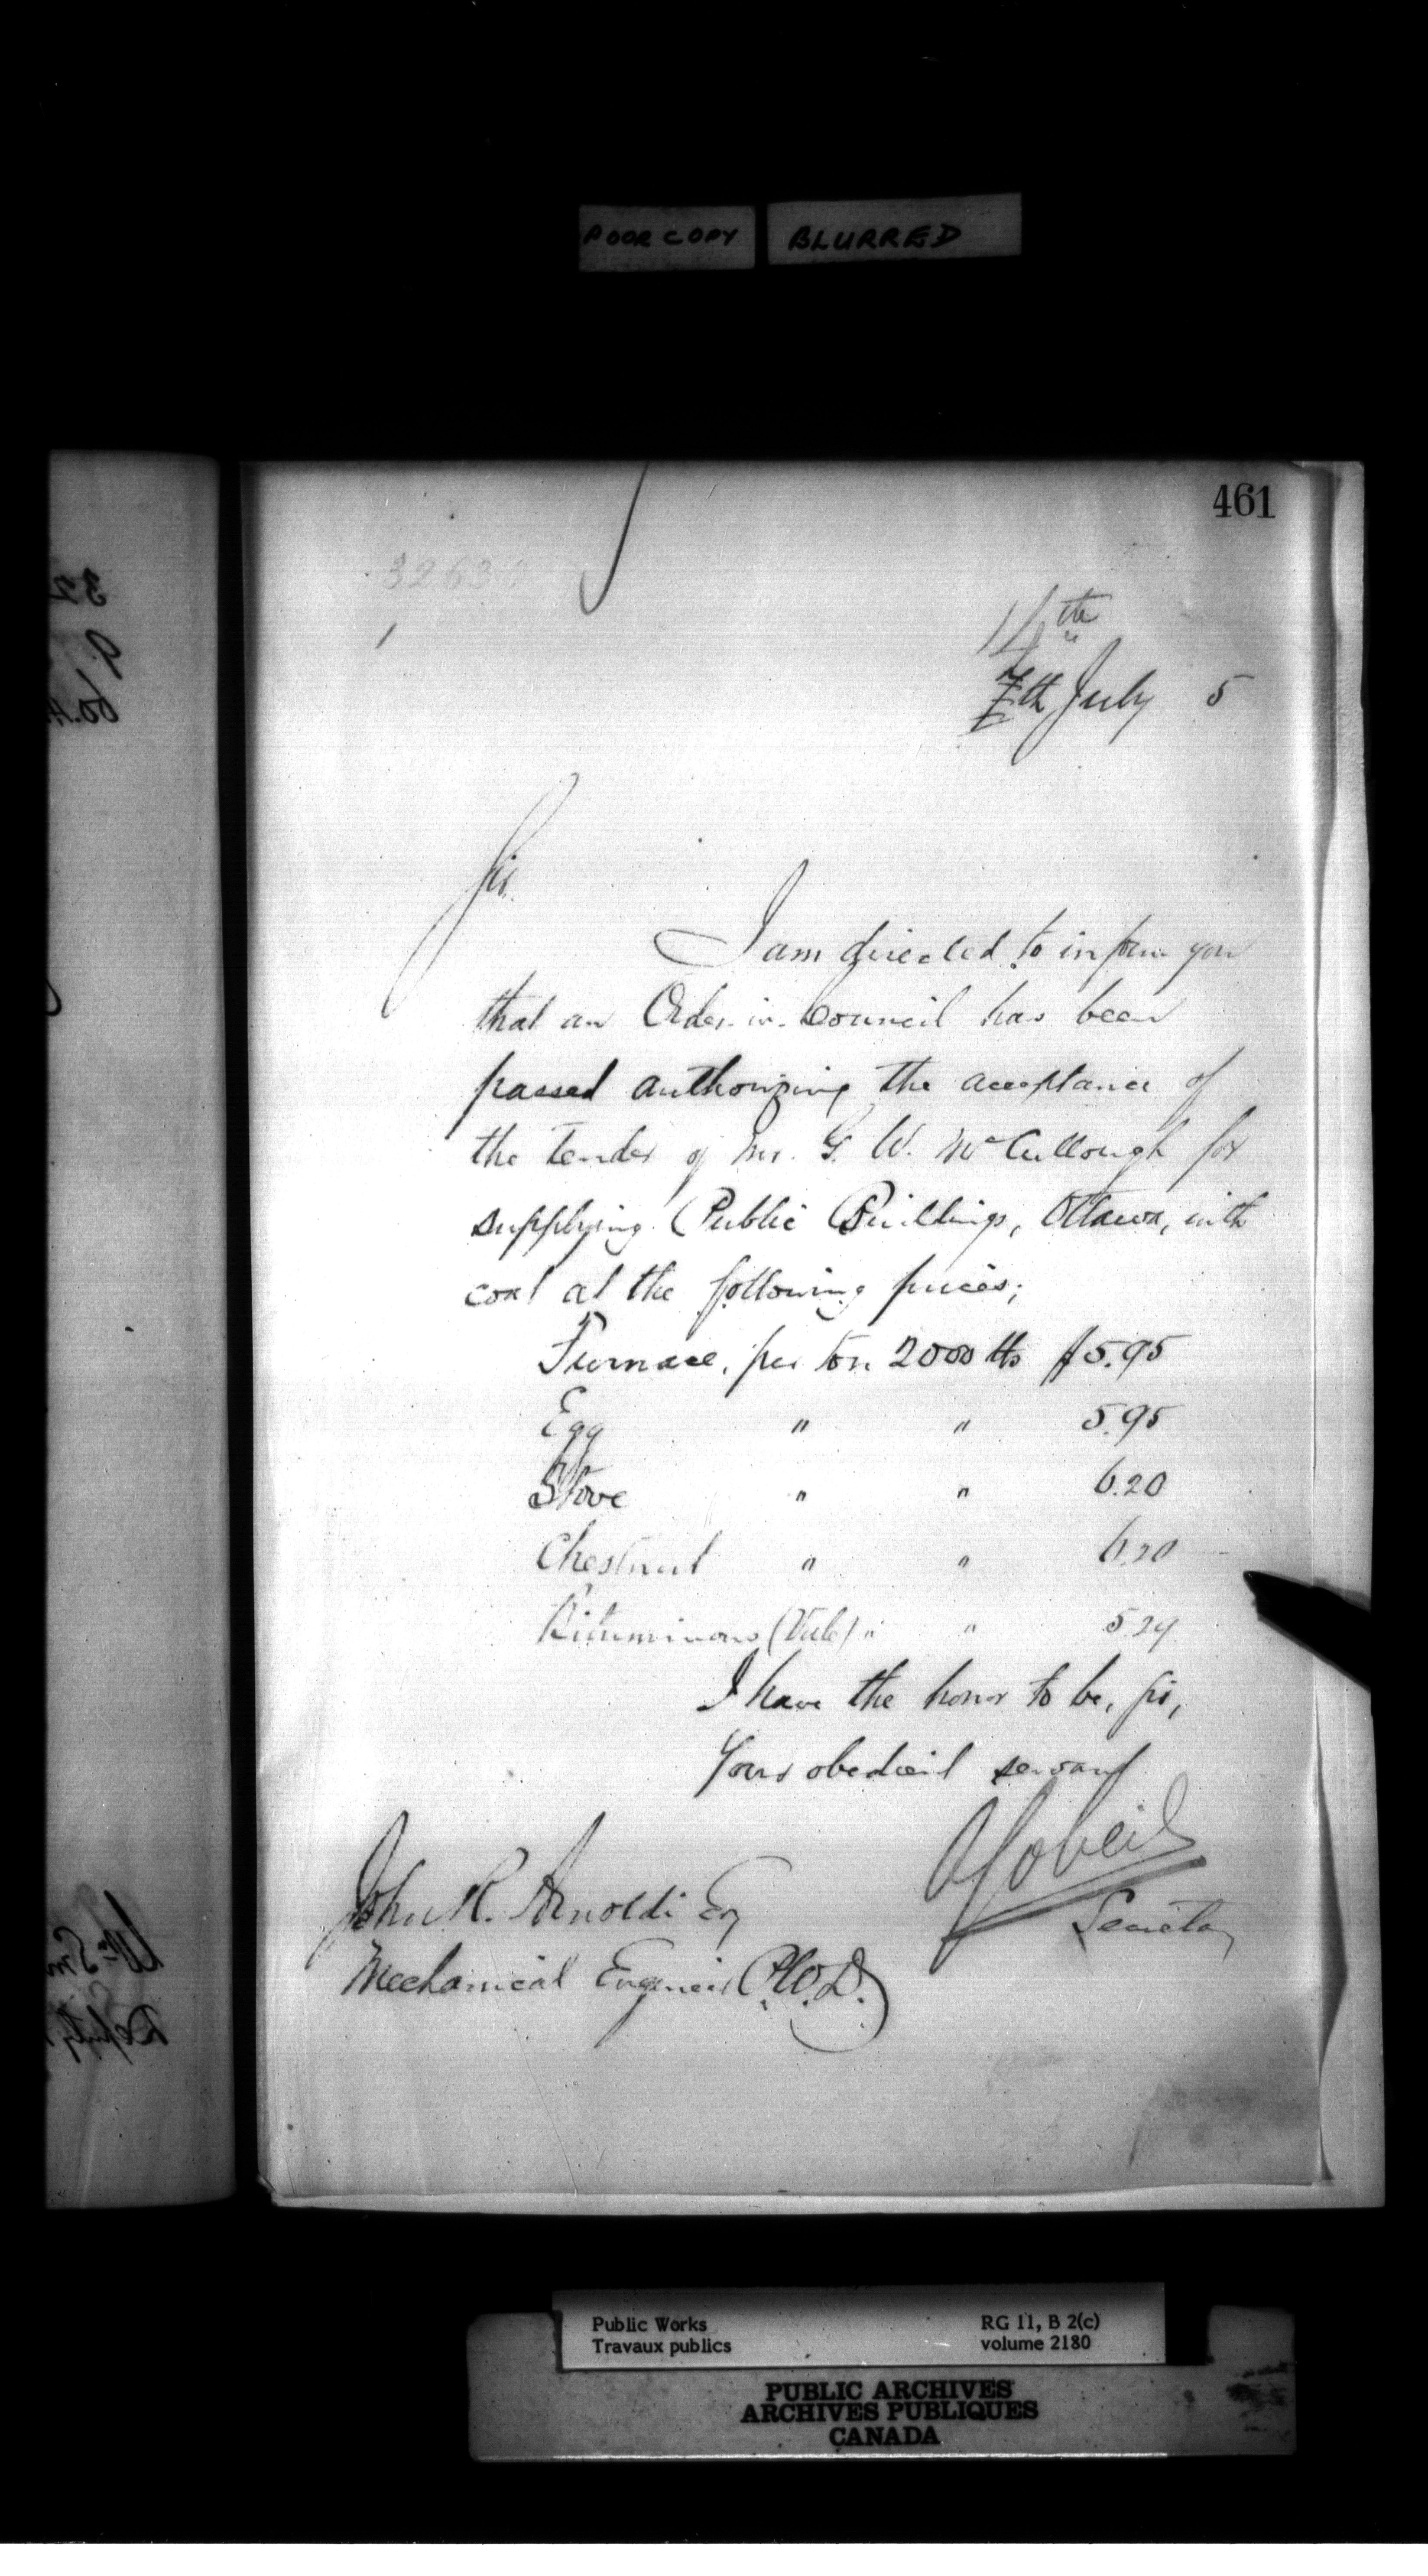 POOR COPY BLURRED
461
3263
14th
7th July 5
Sir.
I am directed to inform you
that an Order in Council has been
passed authorizing the acceptance of
the tender of Mr. G. W. McCullough for
supplying Public Buildings, Ottawa, with
coal at the following prices;
Furnace, per ton 2000 lbs $5.95
Egg " " 5.95
Stove " " 6.20
Chestnut " " 6.20
Bituminous (Vale) " " 5.24
I have the honor to be, Sir,
Your obedient servant
A Gobeil
Secretary
John R. Arnoldi Esq
Mechanical Engineer P.W.D.
Public Works RG 11, B 2(c)
Travaux publics volume 2180
PUBLIC ARCHIVES
ARCHIVES PUBLIQUES
CANADA